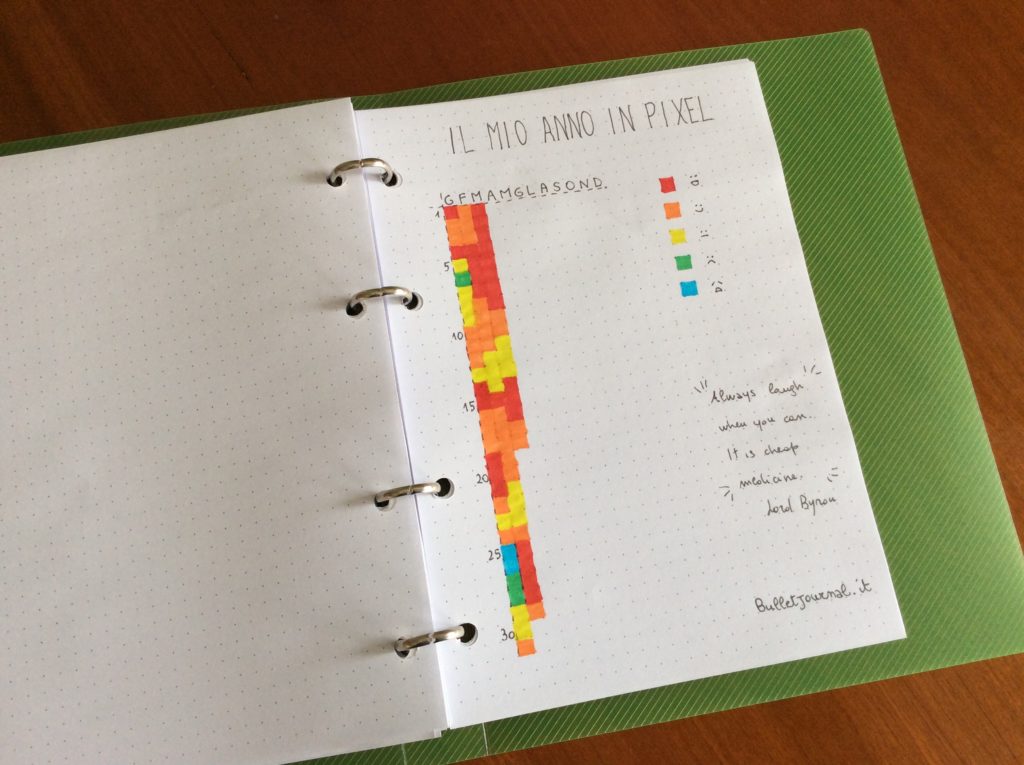 IL MIO ANNO IN PIXEL
G F M A M G L A S O N D
1
5
10
15
20
25
30
:D
:)
:|
:(
Always laugh
when you can.
It is cheap
medicine.
Lord Byron
BulletJournal.it